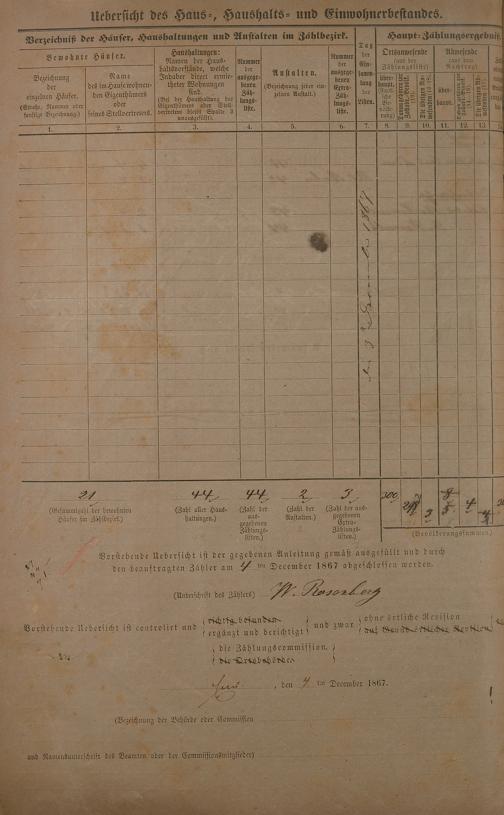 Uebersicht des Haus-, Haushalts- und Einwohnerbestandes.
Verzeichniß der Häuser, Haushaltungen und Anstalten im Zählbezirk.
Haupt-Zählungsergebniß
Bewohnte Häuser.
Bezeichnung
der
einzelnen Häuser.
(Straße, Nummer oder
sonstige Bezeichnung.)
Name
des im Hause wohnen-
den Eigenthümers
oder
seines Stellvertreters.
Haushaltungen:
Namen der Haus-
haltsvorstände, welche
Inhaber direct ermie-
theter Wohnungen
sind.
(Bei der Haushaltung des
Eigenthümers oder Stell-
vertreters bleibt Spalte 3
unausgefüllt).
Nummer
der
ausgege-
benen
Zäh-
lungs-
liste.
Anstalten.
(Bezeichnung jeder ein-
zelnen Anstalt.)
Nummer
der
ausgege-
benen
Extra-
Zäh-
lungs-
liste.
Tag
der
Ein-
samm-
lung
der
Listen.
Ortsanwesende
(aus der
Zählungsliste)
Abwesende
(aus dem
Nachtrag)
über-
haupt.
1. 2. 3. 4. 5. 6. 7. 8. 9. 10. 11. 12. 13.
den 3 December 1867
21 44 44 2 3 4
(Gesammtzahl der bewohnten
Häuser im Zählbezirk.)
(Zahl aller Haus-
haltungen.)
(Zahl der
aus-
gegebenen
Zählungs-
listen.)
(Zahl der
Anstalten.)
(Zahl der aus-
gegebenen
Extra-
Zählungs-
listen.)
(Bevölkerungssummen.)
Vorstehende Uebersicht ist der gegebenen Anleitung gemäß ausgefüllt und durch
den beauftragten Zähler am 4 ten December 1867 abgeschlossen worden.
(Unterschrift des Zählers) W. Rosenberg
Vorstehende Uebersicht ist controlirt und richtig befunden ergänzt und berichtigt und zwar ohne örtliche Revision auf Grund örtlicher Revision
die Zählungscommission.
die Ortsbehörde
, den 4 ten December 1867.
(Bezeichnung der Behörde oder Commission
und Namensunterschrift des Beamten oder der Commissionsmitglieder)